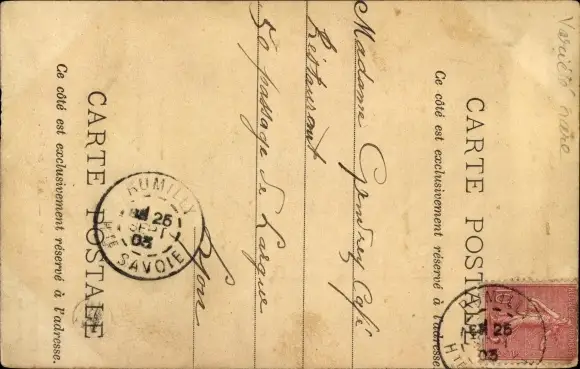 Variété rare
CARTE POSTALE
Ce côté est exclusivement réservé à l'adresse.
Madame Gendrey Café
Restaurant
50 passage de Largue
Lyon
CARTE POSTALE
Ce côté est exclusivement réservé à l'adresse.
RUMILLY
25
SEPT
03
HTE SAVOIE
25
03
HTE